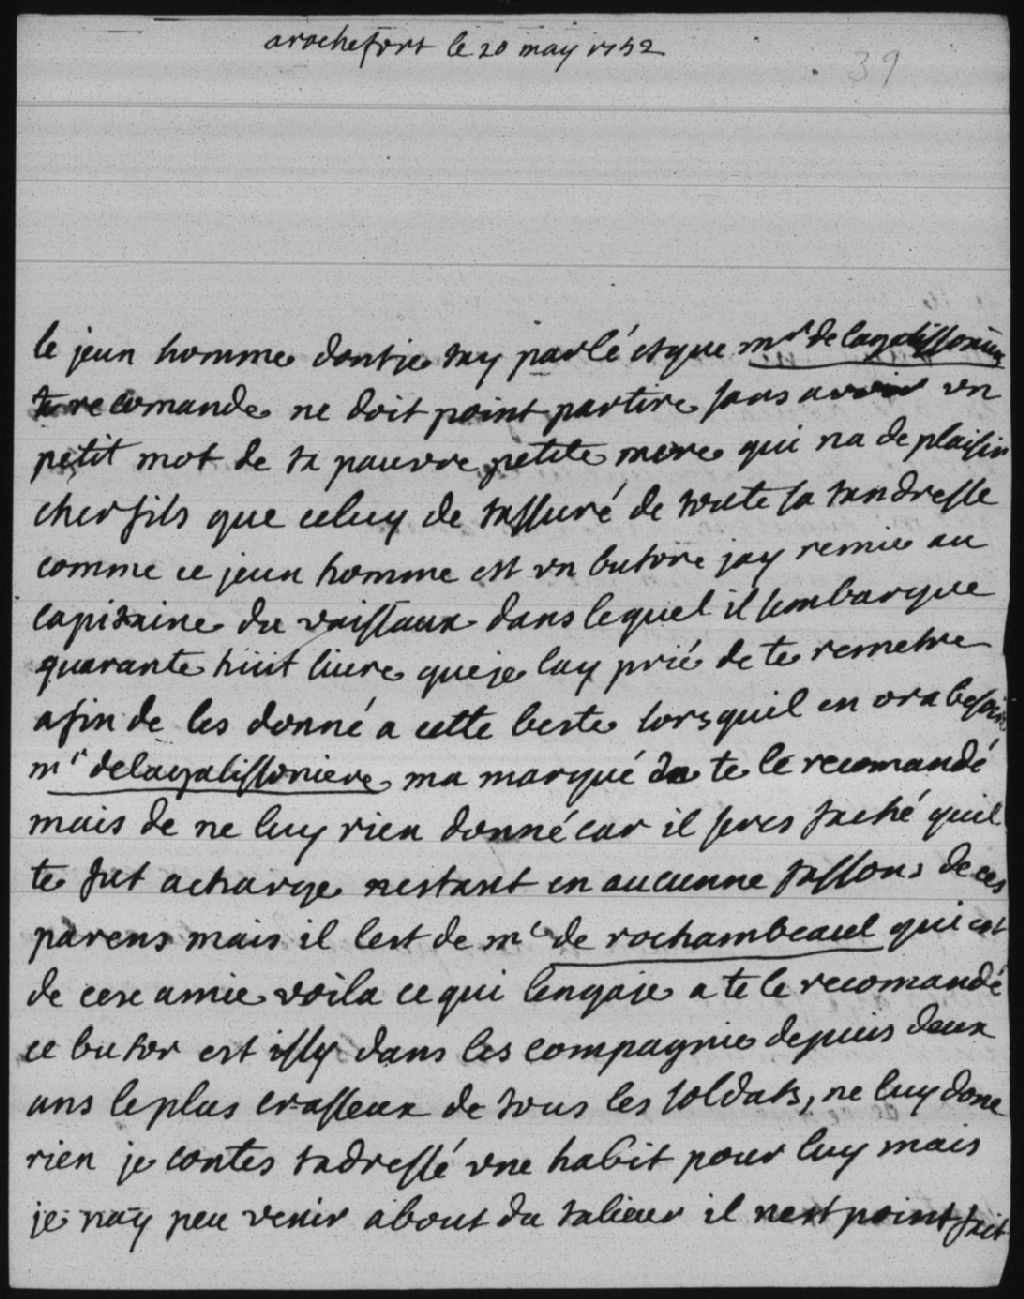 arochefort le 20 may 1752
39
le jeun homme dont je tay parlé et que mr de lagalissoniere
te recomande ne doit point partire sans avoir un
petit mot de ta pauvre petite mere qui na de plaisir
cher fils que celuy de tassuré de toute sa tandresse
comme ce jeun homme est un butore jay remis au
capitaine du vaissaux dans lequel il sembarque
quarante huit livre que je lay prié de te remetre
afin de les donné a cette beste lorsquil en ora besoin
mr delagalissoniere ma marqué de te le recomandé
mais de ne luy rien donné car il seres faché quil
te fut acharge nestant en aucunne fasson de ces
parens mais il lest de mr de rochambeaul qui est
de cese amie voila ce qui lengaje a te le recomandé
ce butor est issy dans les compagnie depuis deux
ans le plus crasseux de tous les soldats, ne luy done
rien je contes tadressé une habit pour luy mais
je nay peu venir about du talieur il nest point fait